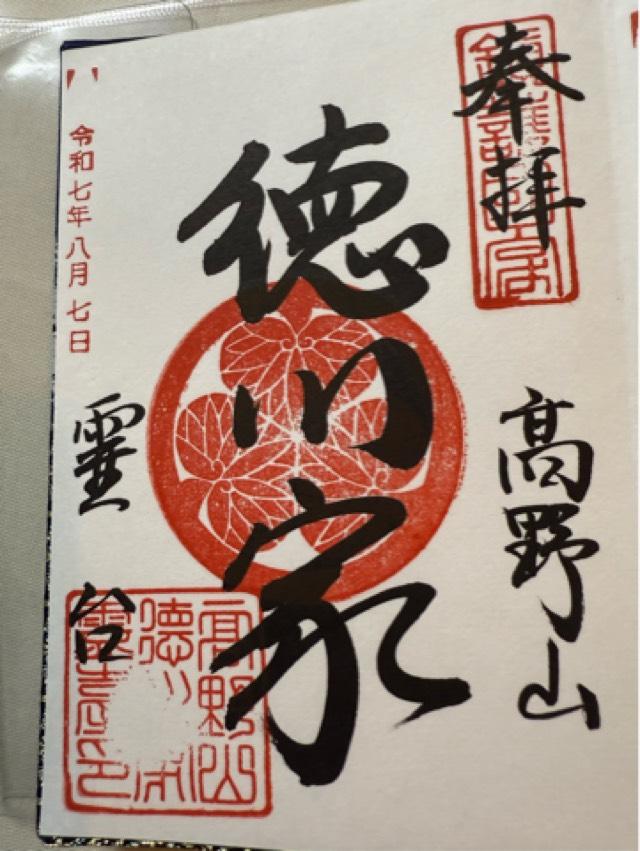 奉拝
髙野山
徳川家
霊台
令和七年八月七日
高野山
徳川家